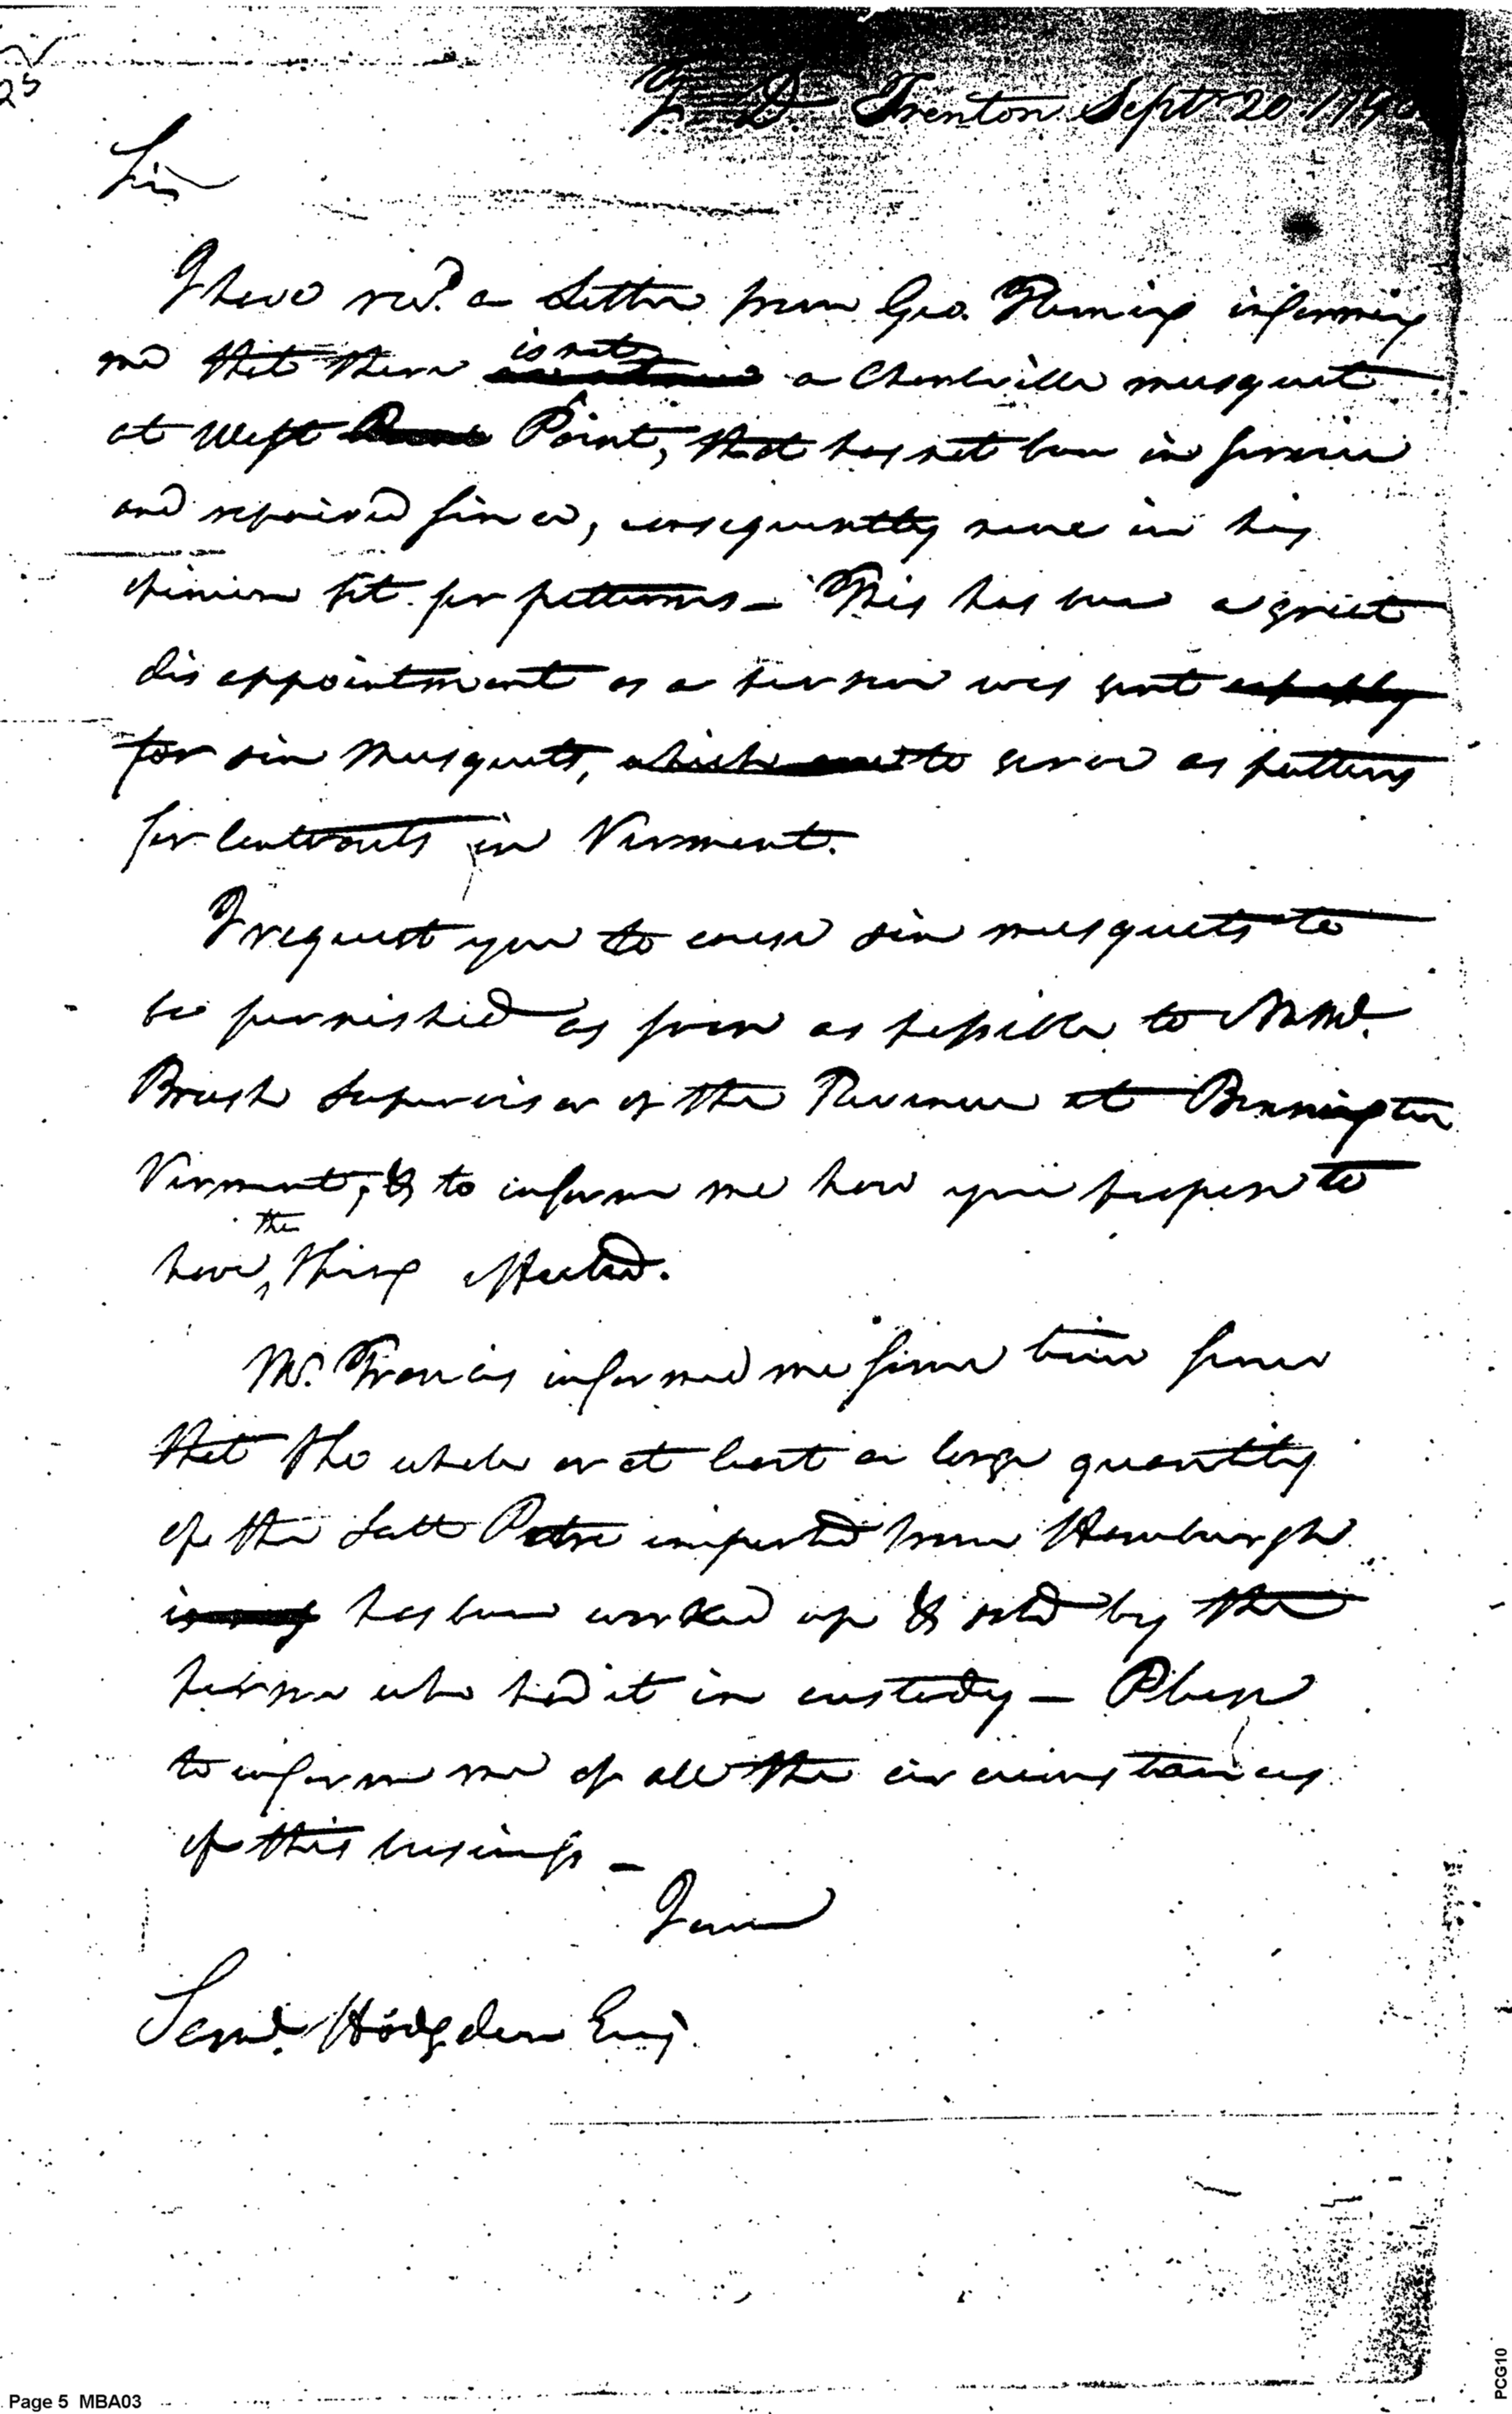 25
T. D. Trenton Sept 20. 179
Sir
I have recd. a Letter from Geo. Fleming informing
is not
me that there a Charlville musquet
at West Point, that has not been in service
and repaired since, consequently none in his
opinion fit for patterns — This has been a great
disappointment as a person was sent expressly
for six musquets, which were to serve as patterns
for Contracts in Vermont.
I request you to cause six musquets to
be furnished as soon as possible to
Brush Supervisor of the Revenue at Bennington
Vermont, & to inform me how you propose to
the
have thing effected.
Mr. Francis informed me some time since
that the whole or at least a large quantity
of the Salt Petre imported from Hamburgh
has been worked up & sold by the
person who had it in custody — Please
to inform me of all the circumstances
of this business —
I am
Saml. Hodgdon Esq.
Page 5 MBA03
PCG10